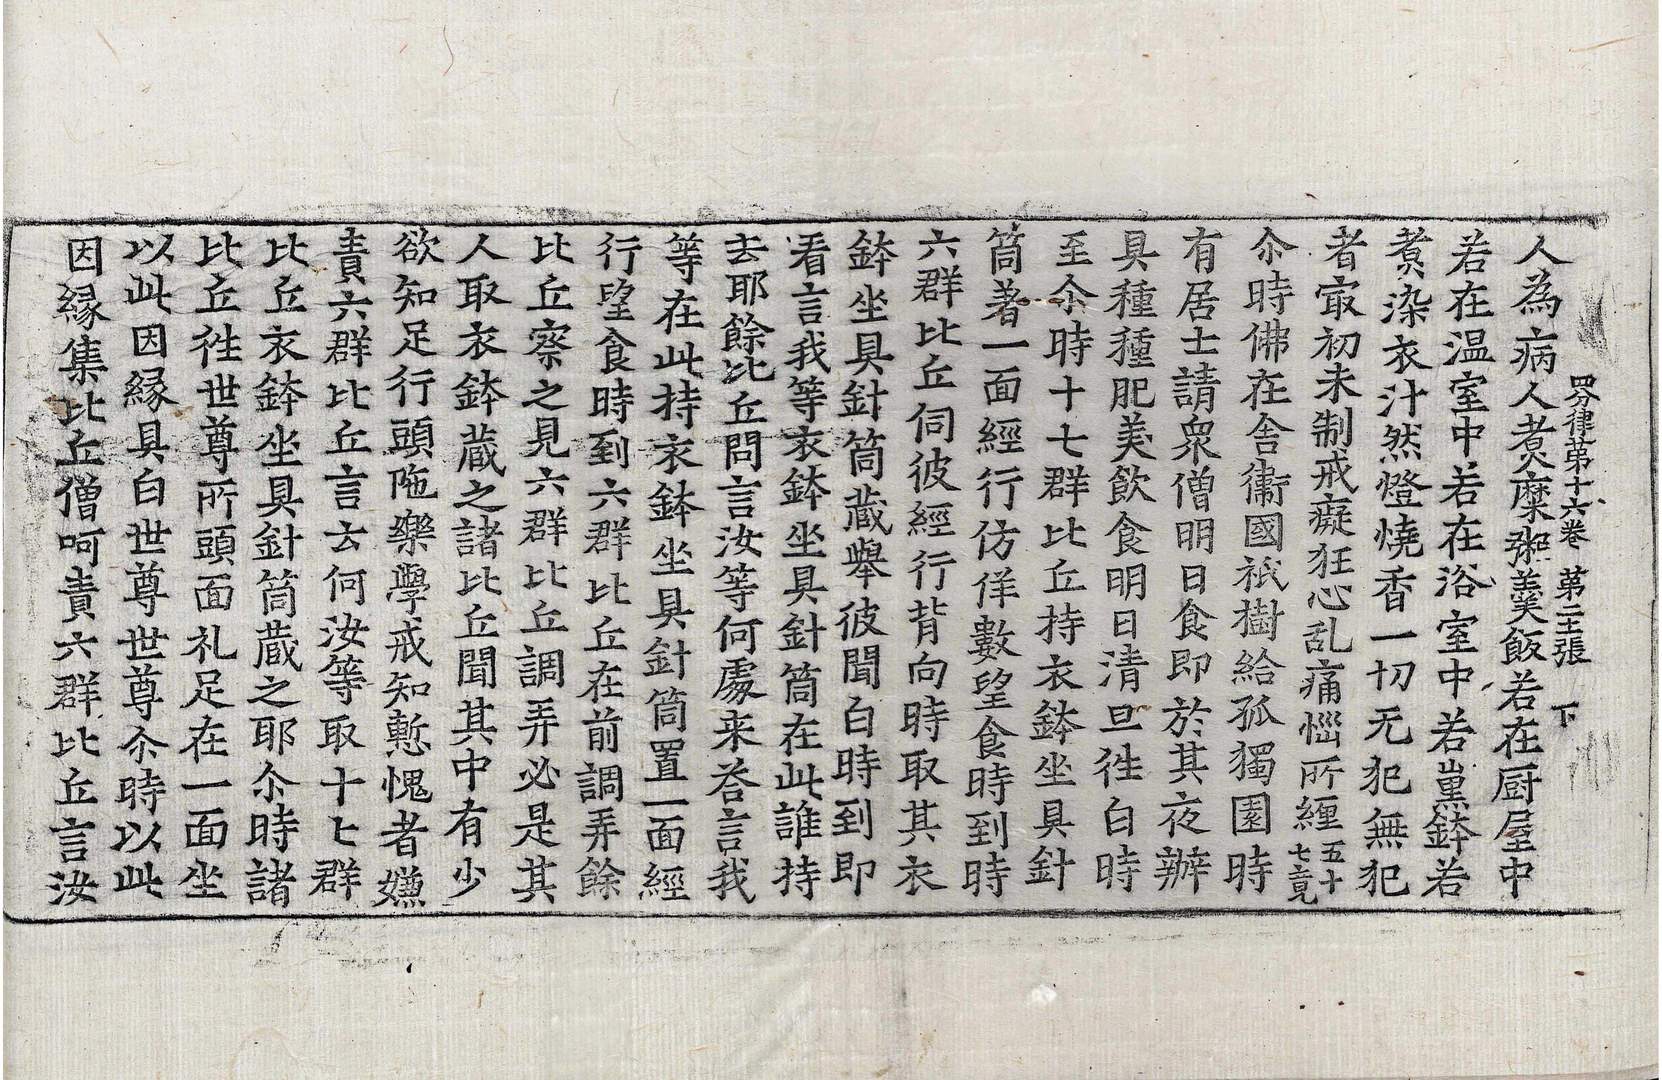 四分律第十六卷 第二張 下
人為病人煑糜粥羹飯若在厨屋中
若在温室中若在浴室中若薰鉢若
煑染衣汁然燈燒香一切无犯無犯
者㝡初未制戒癡狂心乱痛惱所纏五十七竟
尒時佛在舍衞國祇樹給孤獨園時
有居士請衆僧明日食即於其夜辦
具種種肥美飲食明日清旦徃白時
至尒時十七群比丘持衣鉢坐具針
筒著一面經行仿佯數望食時到時
六群比丘伺彼經行背向時取其衣
鉢坐具針筒藏舉彼聞白時到即
看言我等衣鉢坐具針筒在此誰持
去耶餘比丘問言汝等何處来荅言我
等在此持衣鉢坐具針筒置一面經
行望食時到六群比丘在前調弄餘
比丘察之見六群比丘調弄必是其
人取衣鉢藏之諸比丘聞其中有少
欲知足行頭陁樂學戒知慙愧者嫌
責六群比丘言云何汝等取十七群
比丘衣鉢坐具針筒藏之耶尒時諸
比丘徃世尊所頭面礼足在一面坐
以此因緣具白世尊世尊尒時以此
因緣集比丘僧呵責六群比丘言汝